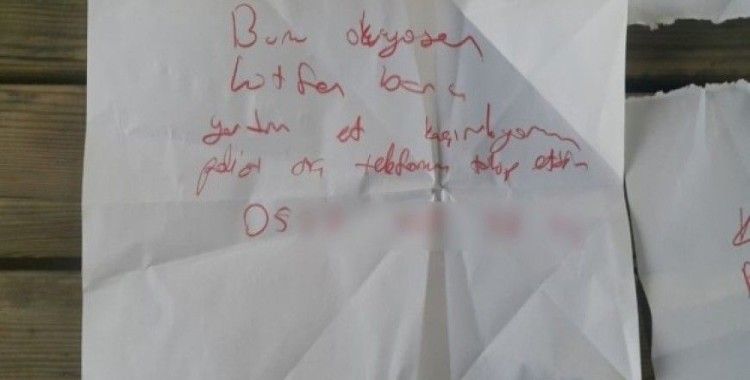 Bunu okuyosan
Lütfen bana
yardım et kaçırılıyorum
polisi ara telefonum takip etsin
05